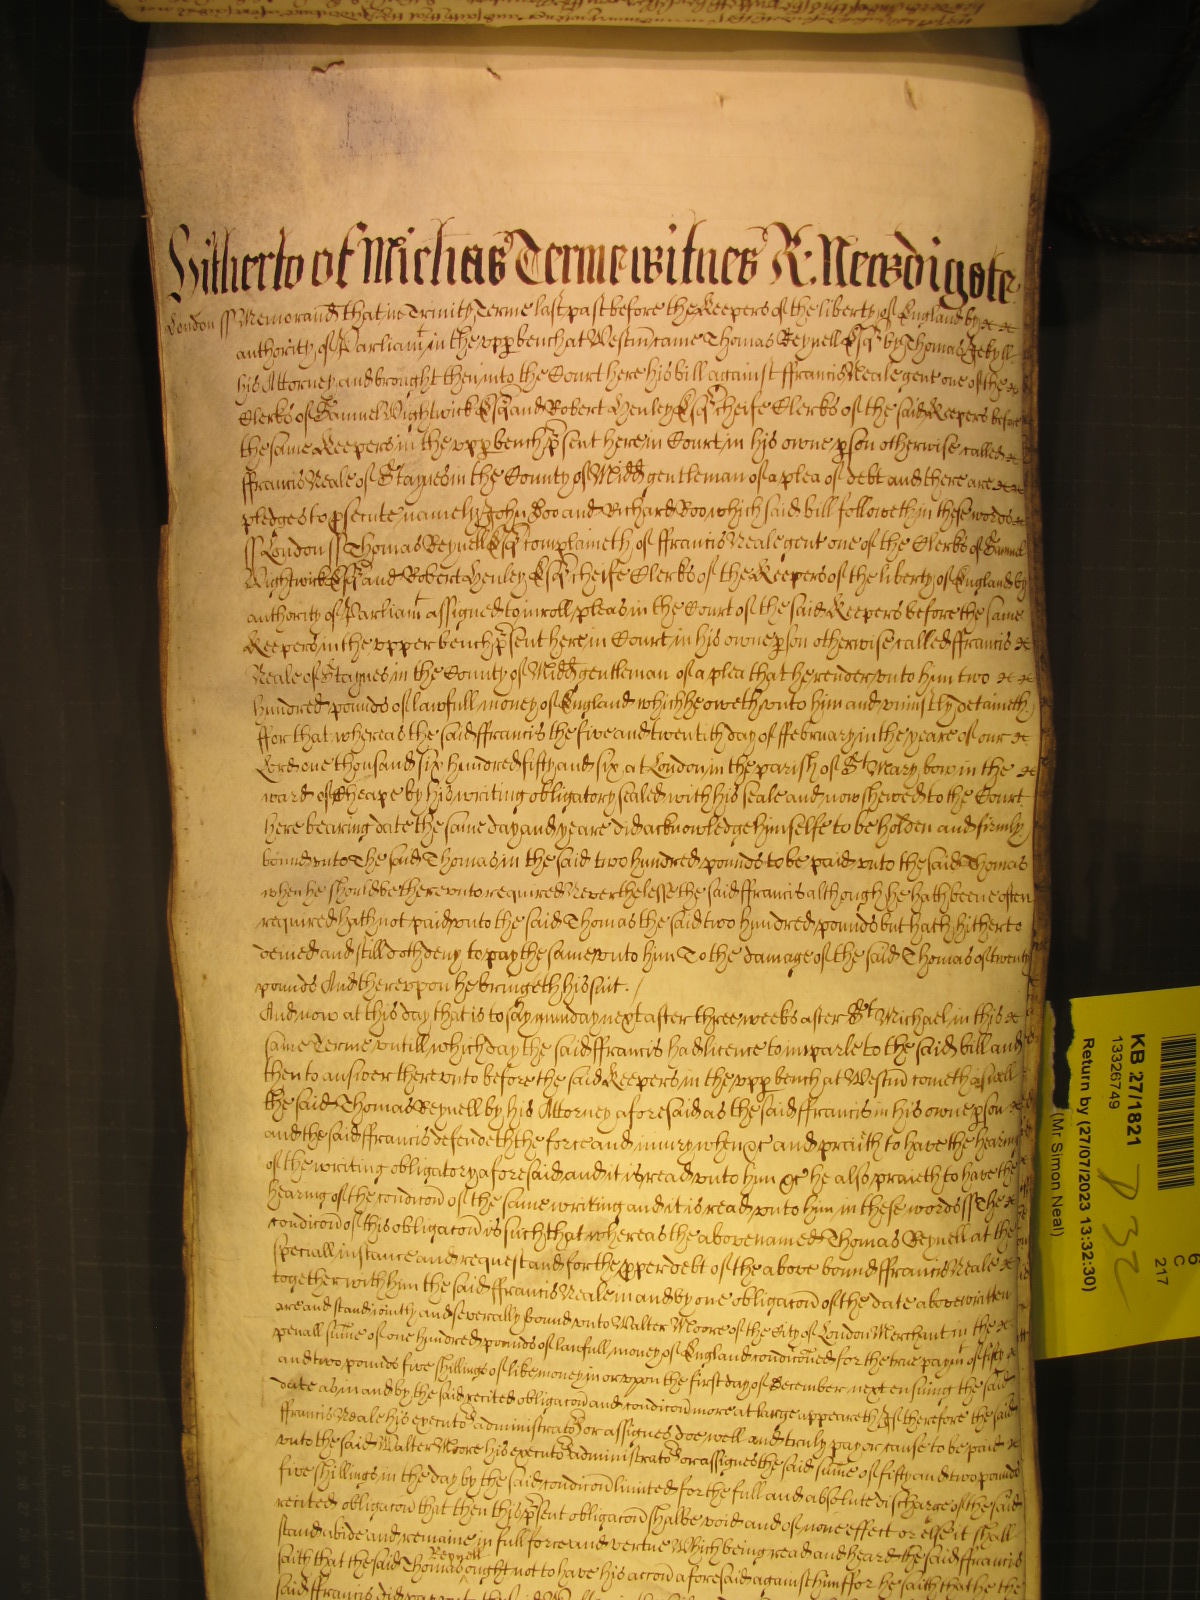 Hitherto of Michas Terme witnes R: Newdigate
London ss Memorand that in Trinity Terme last past before the Keepers of the liberty of England by
authority of Parliamt in the vpp bench at Westm came Thomas Reynell Esqr by Thomas Jekyll
his Attorney and brought then into the Court here his bill against ffrancis Neale gent one of the
Clerks of Samuel Wightwick Esqr and Robert Henley Esqr cheife Clerks of the said Keepers before
the same Keepers in the vpp bench psent here in Court in his owne pson otherwise called
ffrancis Neale of Staynes in the County of Midd gentleman of a plea of debt and there are
pledges to psecute namely John Doo and Richard Roo which said bill followeth in these words
ss London ss Thomas Reynell Esqr complaineth of ffrancis Neale gent one of the Clerks of Samuel
Wightwick Esqr and Robert Henley Esqr cheife Clerks of the Keepers of the liberty of England by
authority of Parliamt assigned to inroll pleas in the Court of the said Keepers before the same
Keepers in the vpper bench psent here in Court in his owne pson otherwise called ffrancis
Neale of Staynes in the County of Midd gentleman of a plea that he render vnto him two
hundred pounds of lawfull money of England which he oweth vnto him and vniustly detaineth
ffor that whereas the said ffrancis the five and twentith day of ffebruary in the yeare of our
Lord one thousand six hundred fifty and six at London in the parish of St Mary bow in the
ward of Cheape by his writing obligatory sealed with his seale and now shewed to the Court
here bearing date the same day and yeare did acknowledge himselfe to be holden and firmly
bound vnto the said Thomas in the said two hundred pounds to be paid vnto the said Thomas
when he should be therevnto required Neverthelesse the said ffrancis although he hath beene often
required hath not paid vnto the said Thomas the said two hundred pounds but hath hitherto
denied and still doth deny to pay the same vnto him To the damage of the said Thomas of twenty
pounds And therevpon he bringeth his suit. /
And now at this day that is to say munday next after three weeks after St Michael in this
same Terme vntill which day the said ffrancis had licence to imparle to the said bill and
then to answer therevnto before the said Keepers in the vpp bench at Westm cometh aswell
the said Thomas Reynell by his Attorney aforesaid as the said ffrancis in his owne pson
and the said ffrancis defendeth the force and iniury when &c and praieth to have the hearing
of the writing obligatory aforesaid and it is read vnto him &c he also praieth to have the
hearing of the condicon of the same writing and it is read vnto him in these words ss The
condicon of this obligacon is such that whereas the abovenamed Thomas Reynell at the
speciall instance and request and for the pper debt of the above bound ffrancis Neale
together with him the said ffrancis Neale in and by one obligacon of the date abovewritten
are and stand iointly and severally bound vnto Walter Moore of the City of London Merchant in the
penall sume of one hundred pounds of lawfull money of England condiconed for the true paymt of fifty
and two pounds five shillings of like money in or vpon the first day of December next ensuing the said
date as in and by the said recited obligacon and condicon more at large appeareth If therefore the said
ffrancis Neale his executors administrators or assignes doe well and truly pay or cause to be paid
vnto the said Walter Moore his executors administrators or assignes the said sume of fifty and two pounds
five shillings in the day by the said condicon limited for the full and absolute discharge of the said
recited obligacon that then this psent obligacon shalbe void and of none effect or else it shall
stand abide and remaine in full force and vertue Which being read and heard the said ffrancis
saith that the said Thomas Reynell ought not to have his accon aforesaid against him ffor he saith that he the
said ffrancis did
KB 27/1821
13326749
Return by (27/07/2023 13:32:30)
(Mr Simon Neal)
6
C
217
P 32